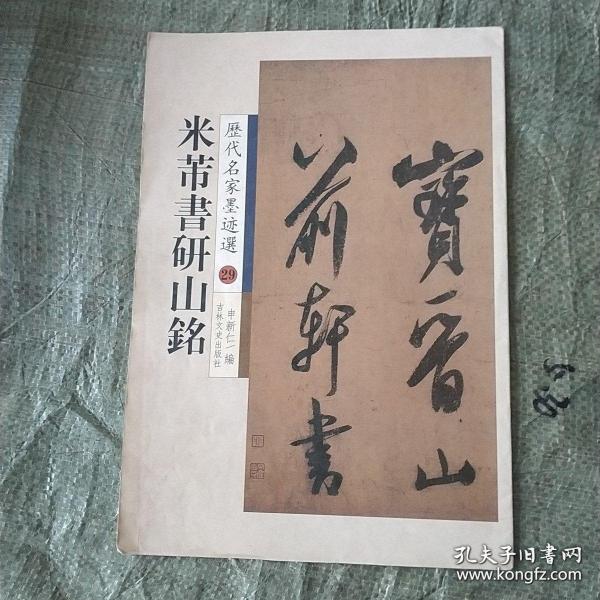 米芾書研山銘
歷代名家墨迹選
29
申新仁 編
吉林文史出版社
寶晉山
前軒書
孔夫子旧書网
www.kongfz.com